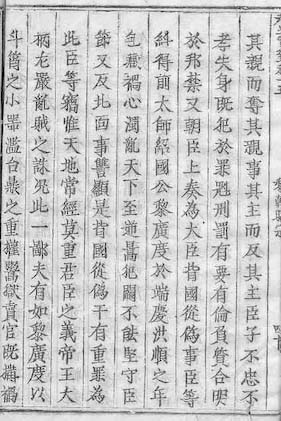 其親而奪其親事其主而反其主臣子不忠不
孝失身既犯於罪魁刑罰有要有倫負合
於邦禁又朝臣上奏為大臣背國從偽事臣等
糾得前太師紹國公黎廣度於端慶洪順之年
包藏禍心濁亂天下至逆暠犯闕不能堅守臣
節又反北面事讐顯是背國從偽干有重罪為
此臣等竊惟天地常經莫重君臣之義帝王大
柄尤嚴亂賊之誅况此一鄙夫有如黎廣度以
斗筲之小器濫台鼎之重權鬻獄賣官既搆禍